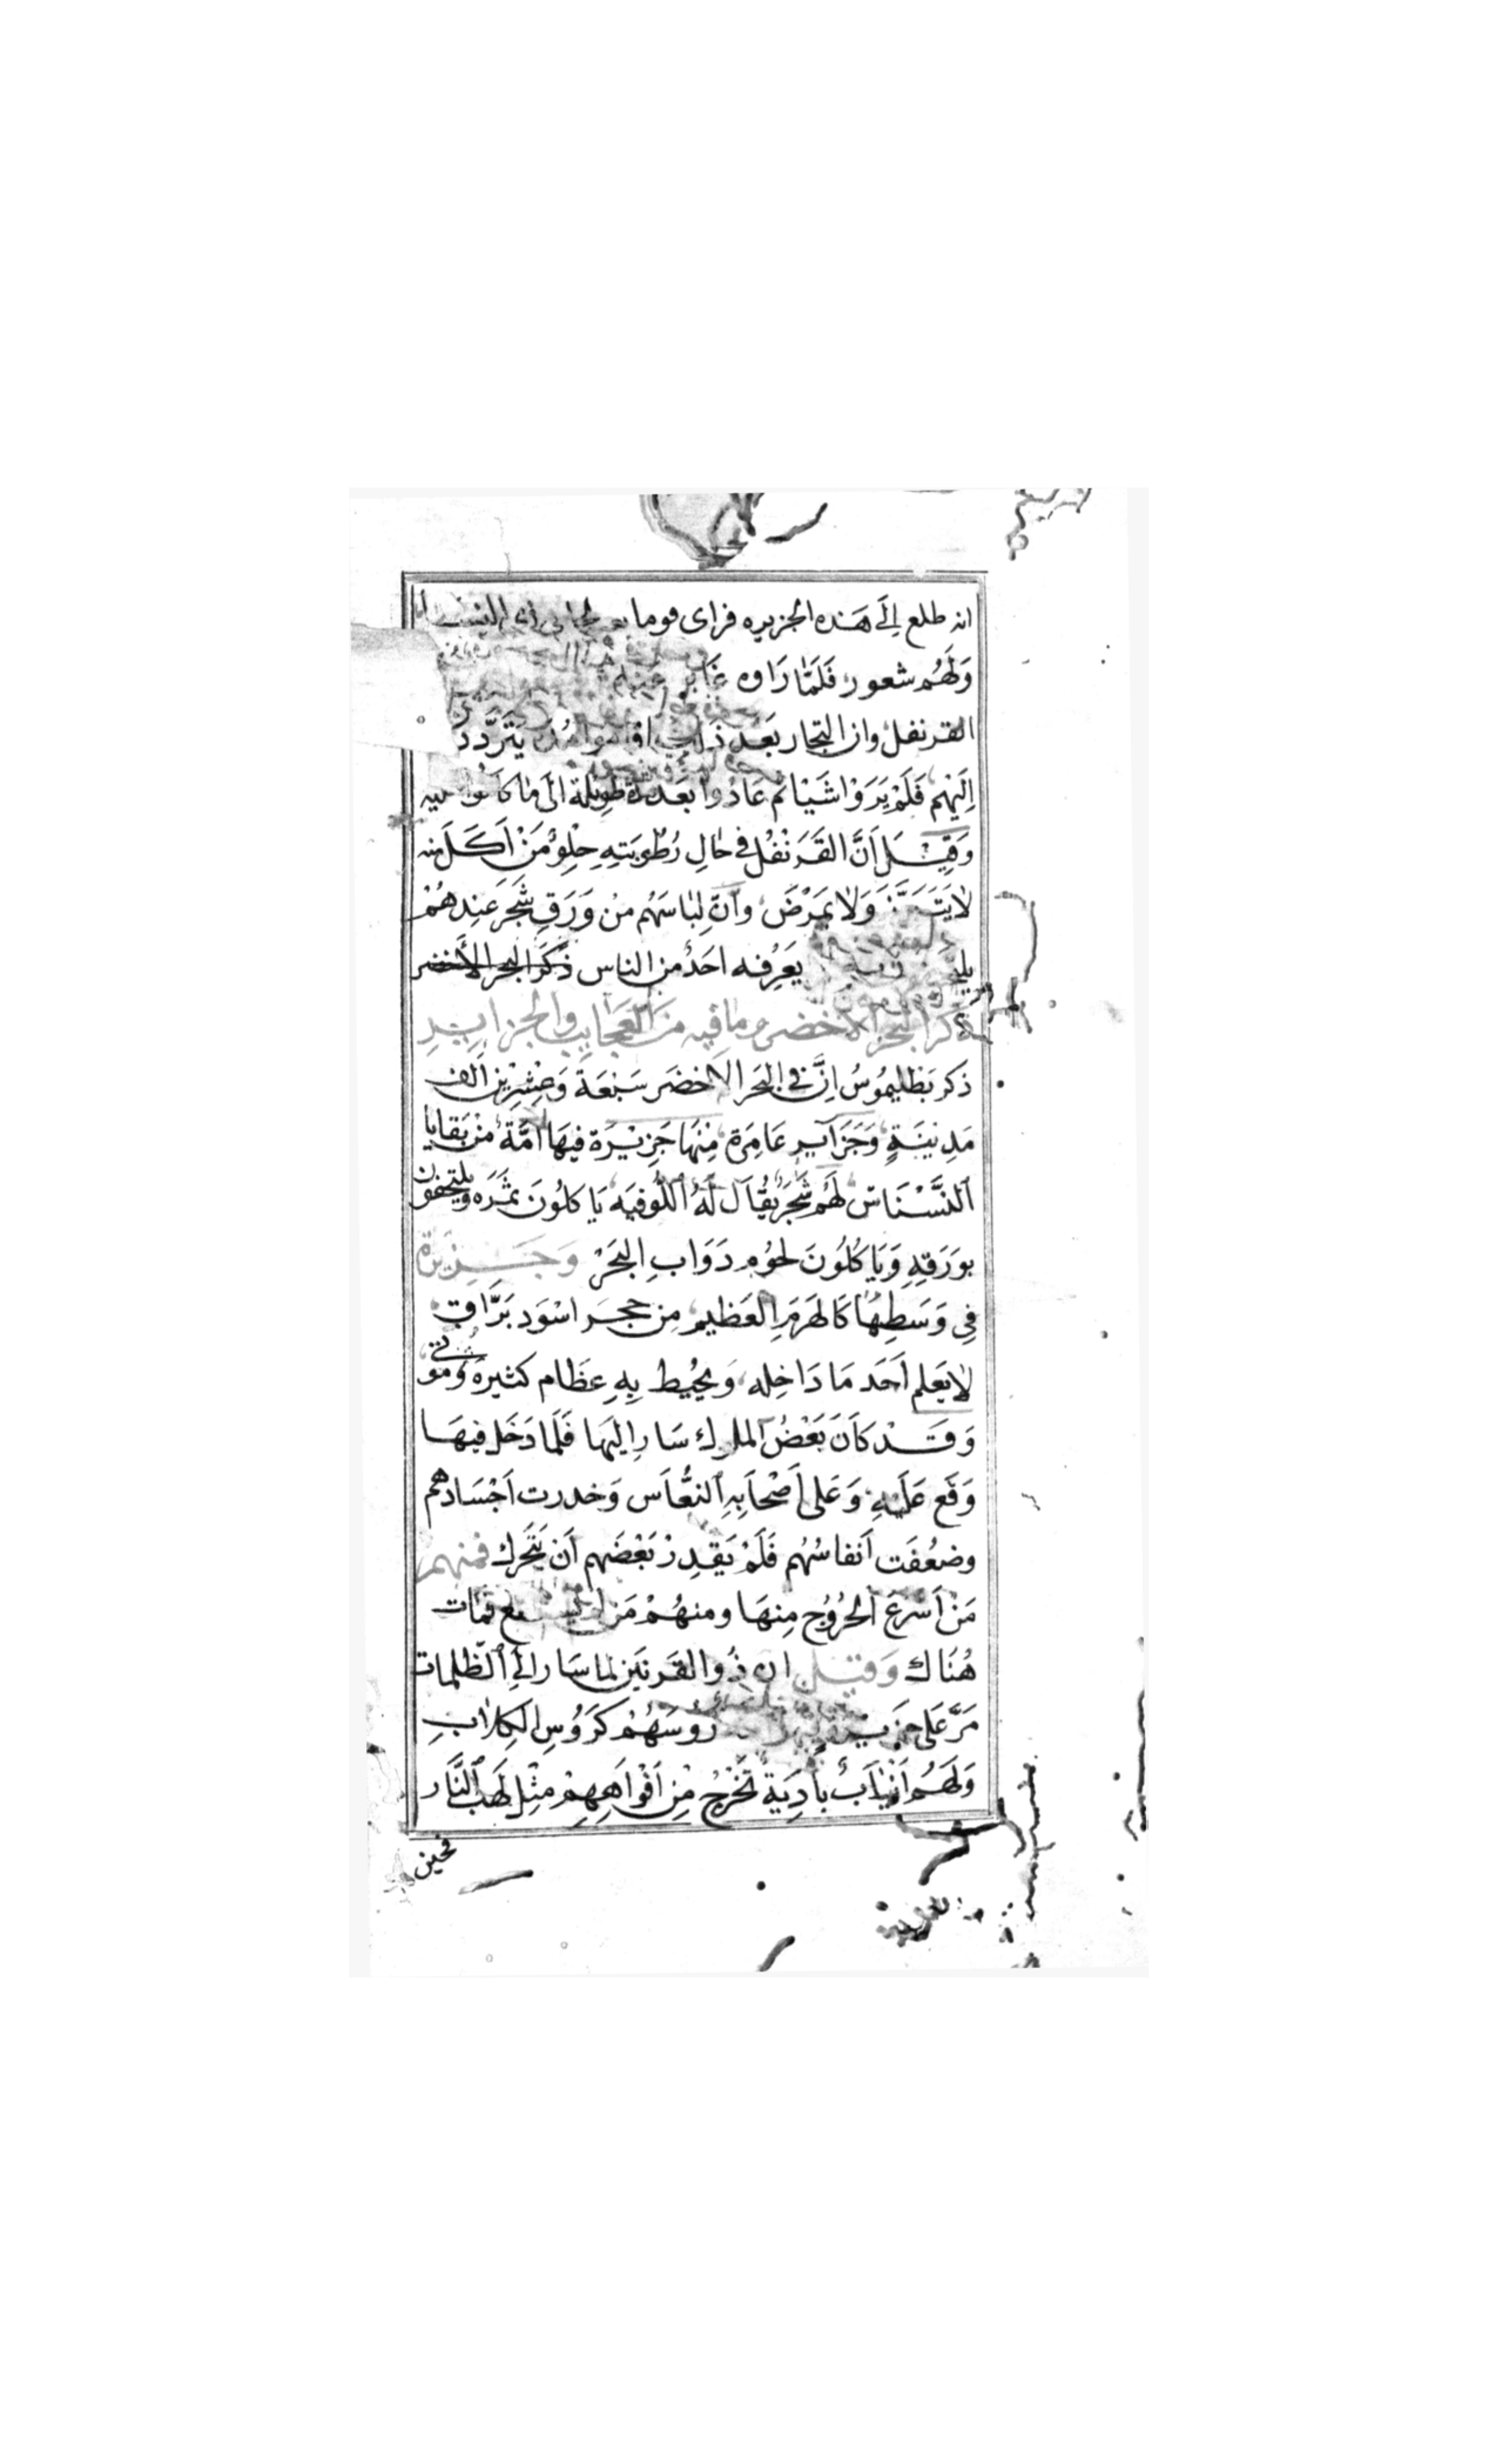 انه طلع إلى هذه الجزيره فراى قوما
وَلَهُم شعور فَلَمَّا رَاوه غَاب عنهم
القرنفل وان التجار بَعد ذَلك يَتَرَدَّد
اِلَيْهِم فَلَمْ يَرَوْا شَيْئا ثم عَادُوا بَعد مدة طويلة الى ما كَانوا عليه
وَقِيلَ اَنَّ القَرَنْفُل في حَالِ رُطُوبَتِهِ حِلْوٌ مَنْ اَكَلَ منه
لا يَتَغَيَّر وَلا يَمرَضْ وَانَّ لِبَاسَهُم مِنْ وَرَقِ شَجَرٍ عَنِدهُمْ
يَعرِفه احَدٌ من الناس ذكَر البحر الأخضر
ذكر البحر الاخضر وما فيه من العَجَايب والجزايِرِ
ذكر بَطْلِيمُوسُ اِنَّ في البَحر الاخضَر سَبْعَةَ وَعِشْرِين اَلف
مَدِينَةٍ وَجَزَآير عَامِرَة مِنْهَا جَزِيْرَة فيهَا امَّة مِنْ بَقَايا
النَّسْنَاس لَهُم شَجَر يُقَال لَهُ اللُّوفيَه يَاكلُونَ ثَمَرَه ويلتحفون
بوَرَقِهِ وَيَاكُلُونَ لحُوُم دَوَابِ البَحَرْ وَجَزِيرَة
فِي وَسَطِهَا كَالهَرَمِ العَظيم مِن حجر اسْوَد بَرَّاق
لا يَعلم اَحَد مَا دَاخِله وَيحُيط بِهِ عِظَام كثيرة وَموتى
وَقَدْ كَانَ بَعْضُ الملوك سَار اِلَيهَا فَلَمَا دَخَل فيهَا
وَقَع عَلَيهِ وَعَلى اَصْحَابِهِ النعَاس وَخدرت اَجْسَادهم
وضعُفَت اَنفاسُهُم فَلَمْ يَقدِرْ بَعْضَهم اَن يَتَحَرك فمنهم
مَنْ اَسْرعَ الخُرُوُج مِنهَا ومنهُمْ مَن لم يستطع فمَات
هُنَاك وَقيل ان ذُو القَرنَين لما سَار الى الظلمات
مَرَّ عَلى جَزيرة رُؤسَهُمْ كَرَؤُسِ الكِلابِ
وَلَهَمُ اَنْيَاَبٌ بَادِيَة تَخْرجُ مِن اَفْوَاهِهِمْ مثِل لَهَب النَّار
فحين